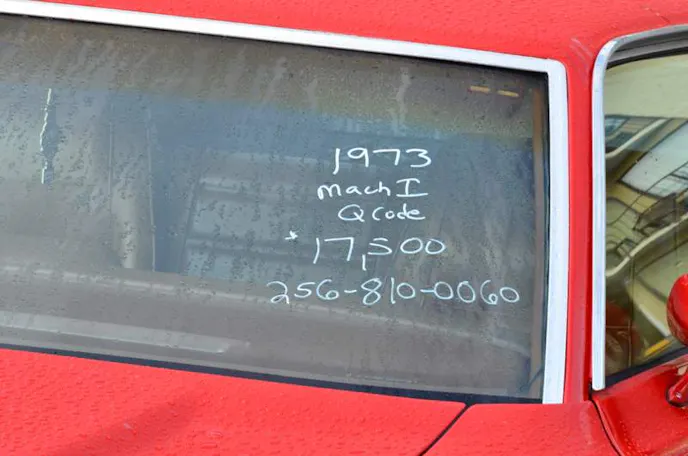 1973
Mach I
Q Code
*17,500
256-810-0060